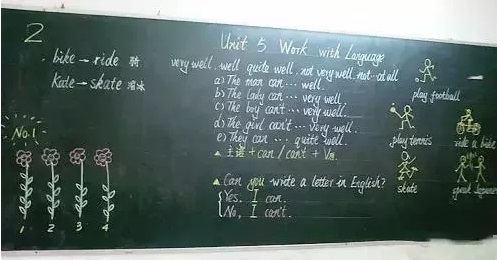 2
bike → ride 骑
Kate → skate 溜冰
No.1
1 2 3 4
Unit 5 Work with Language
very well, well quite well, not very well, not at all
a) The man can … well.
b) The lady can … very well.
c) The boy can't … very well.
d) The girl can't … very well.
e) They can … quite well.
▲ 主语 + can / can't + V原
▲ Can you write a letter in English?
Yes, I can.
No, I can't.
play football
play tennis
ride a bike
skate
speak